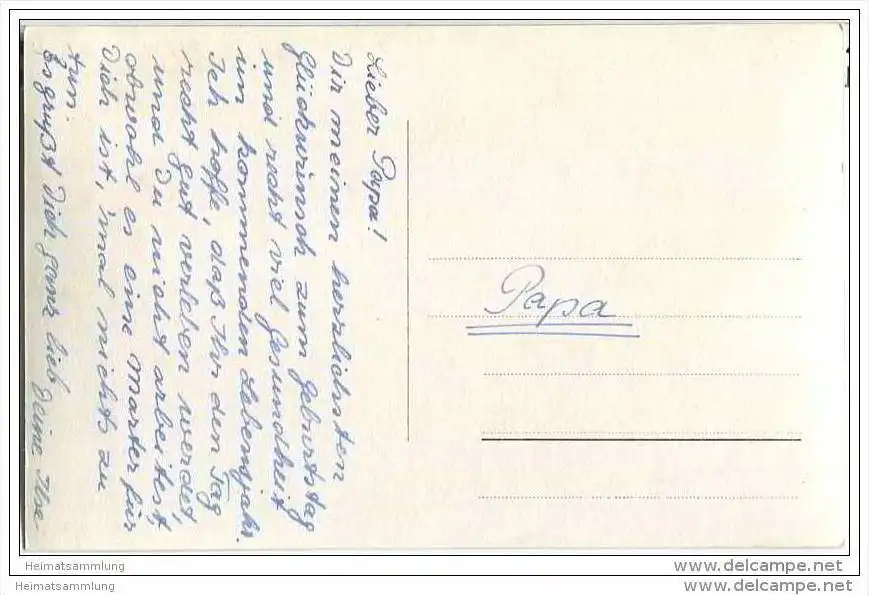 Lieber Papa!
Dir meinen herzlichsten
Glückwunsch zum Geburtstag
und recht viel Gesundheit
im kommenden Lebensjahr.
Ich hoffe, daß Ihr den Tag
recht gut verleben werdet,
und Du nicht arbeitest,
obwohl es eine Marter für
Dich ist, 'mal nichts zu
tun.
Es grüßt Dich ganz lieb Deine Ilse
Papa
Heimatsammlung
www.ansichtskarten-center.de
Heimatsammlung
www.ansichtskarten-center.de